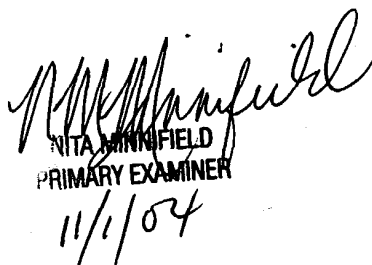 N M Minnifield
NITA MINNIFIELD
PRIMARY EXAMINER
11/1/04